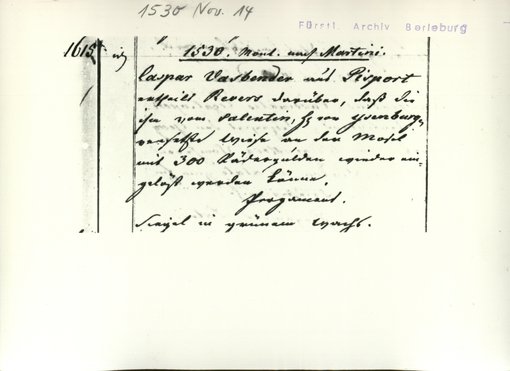 1530 Nov. 14
Fürstl. Archiv Berleburg
1615
1530. Mont. nach Martini.
Caspar Vasbender aus Pisport
ertheilt Revers darüber, daß die
ihm vom Valentin, H. von Ysenburg,
versetzte Wiese an der Mosel
mit 300 Rädergulden wieder ein-
gelöst werden könne.
Pergament.
Siegel in grünem Wachs.